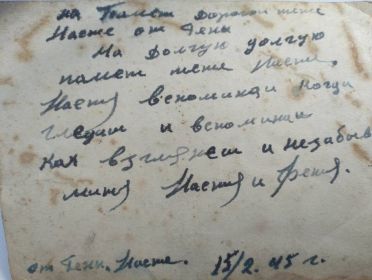 на Памет дорогой тете
Насте от Гены
На Долгую долгую
памет тете Насте.
Настя вспоминай когда
гледиш и вспоминай
как взглянеш и незабыв
миня Настя и Феня.
от Гени. Насте. 15/2. 45 г.